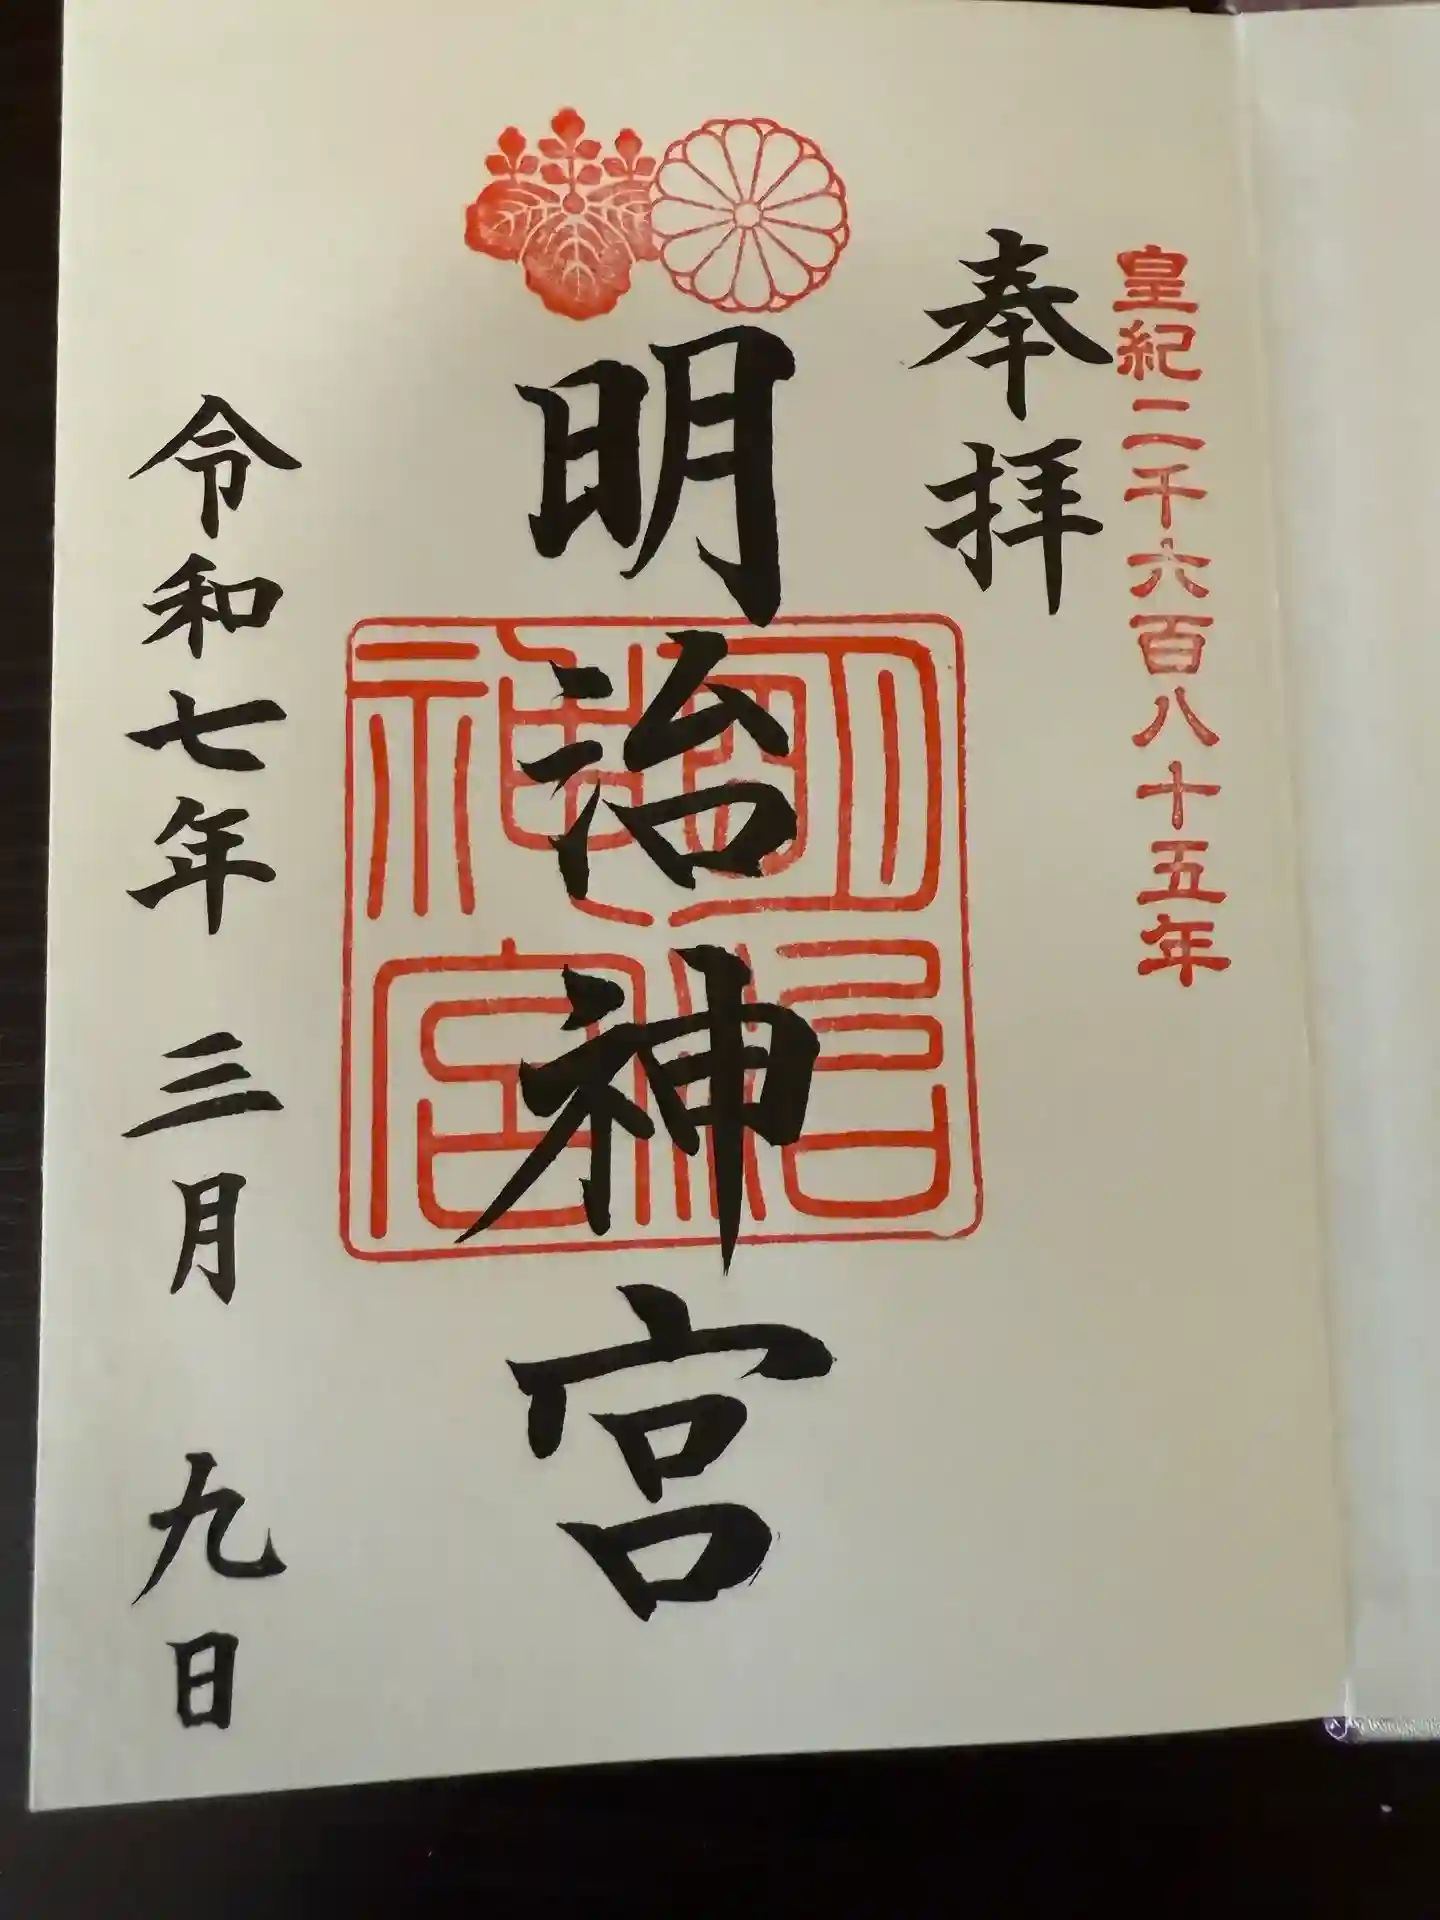 皇紀二千六百八十五年
奉拝
明治神宮
明治神宮
令和七年 三月 九日